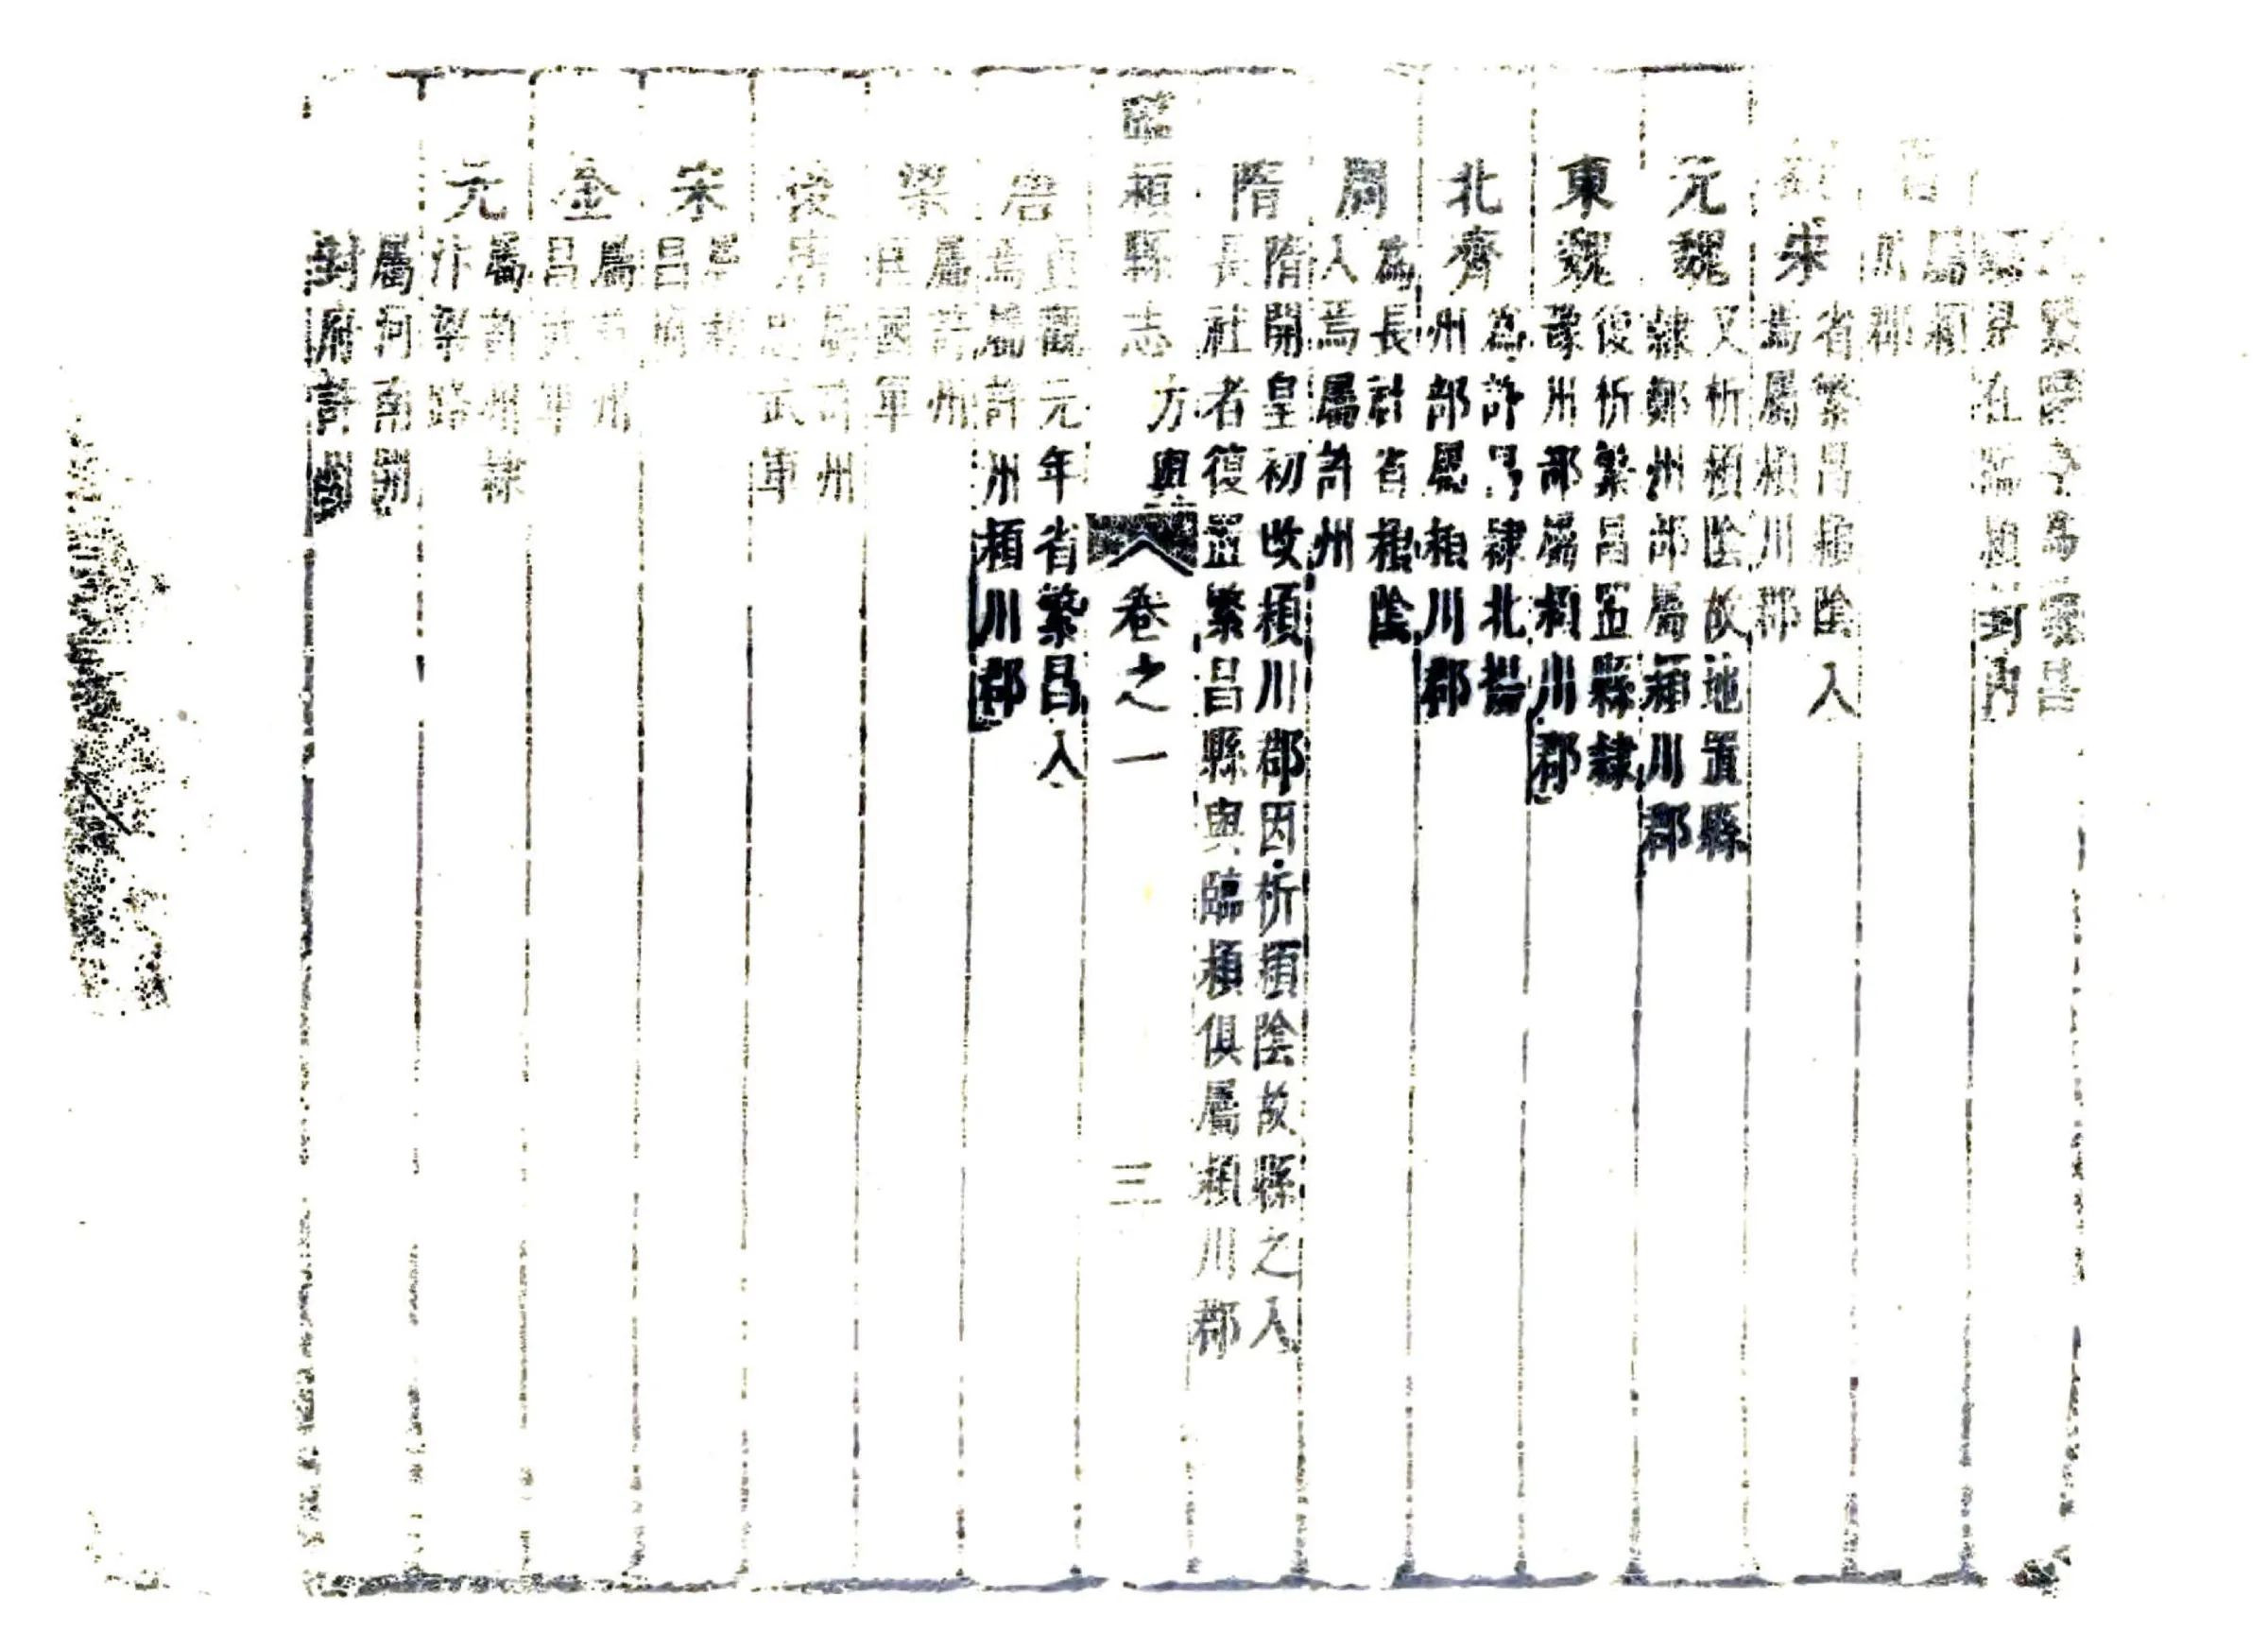 繁 亭為繁昌
縣是在臨潁封內
晉
屬潁
川郡
劉宋
省繁昌潁陰入
焉屬潁川郡
元魏
又析潁陰故地置縣
隸鄭州部屬潁川郡
東魏
復析繁昌置縣隸
豫州部屬潁川郡
北齊
為許昌隸北揚
州部屬潁川郡
周
為長社省潁陰
入焉屬許州
隋
隋開皇初改潁川郡因析潁陰故縣之入
長社者復置繁昌縣與臨潁俱屬潁川郡
臨潁縣志 方輿 卷之一 三
唐
貞觀元年省繁昌入
焉屬許州潁川郡
梁
屬許州
匡國軍
後唐
屬許州
忠武軍
宋
屬潁
昌府
金
屬許州
昌武軍
元
屬許州隸
汴梁路
屬河南開
封府許州